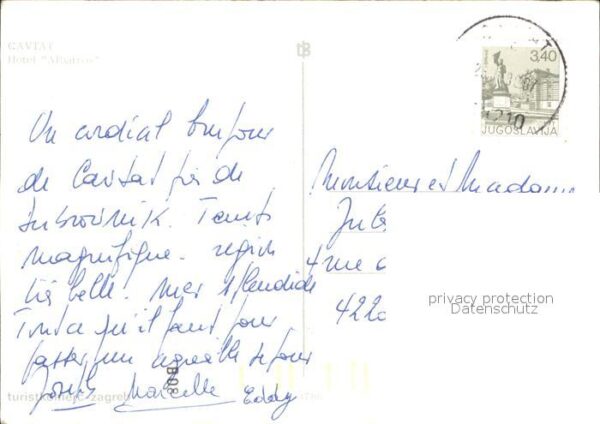 CAVTAT
Hotel "Albatros"
TB
3,40
JUGOSLAVIJA
210
Un cordial bonjour
de Cavtat près de
Dubrovnik. Temps
magnifique. région
très belle. Mer splendide
Tout ce qu'il faut pour
passer un agréable séjour
Marcelle Eddy
Monsieur et Madame
4 rue
422
privacy protection
Datenschutz
B08
turistkomerc-zagreb